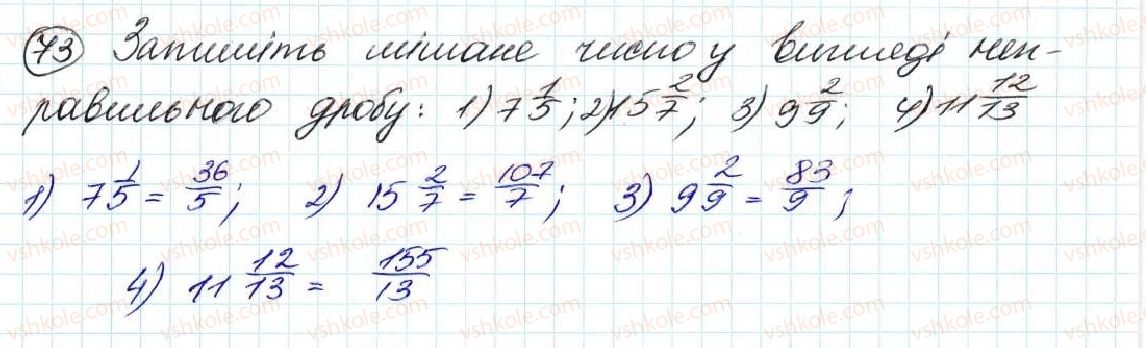 73 Запишіть мішане число у вигляді неп-
равильного дробу: 1) 7 1/5; 2) 15 2/7; 3) 9 2/9; 4) 11 12/13
1) 7 1/5 = 36/5; 2) 15 2/7 = 107/7; 3) 9 2/9 = 83/9;
4) 11 12/13 = 155/13